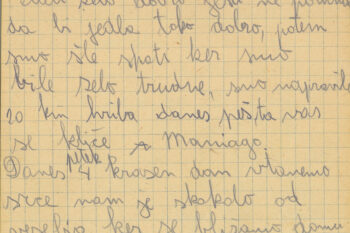 zelo dobro
da bi jedla tako dobro, potem
smo šle spati ker smo
bile zelo trudne, smo napravile
20 km hriba danes pešta vas
se kliče Maniago.
petek
Danes 4 krasen dan vtanemo
srce nam je skakalo od
veselja ker se bližamo domu